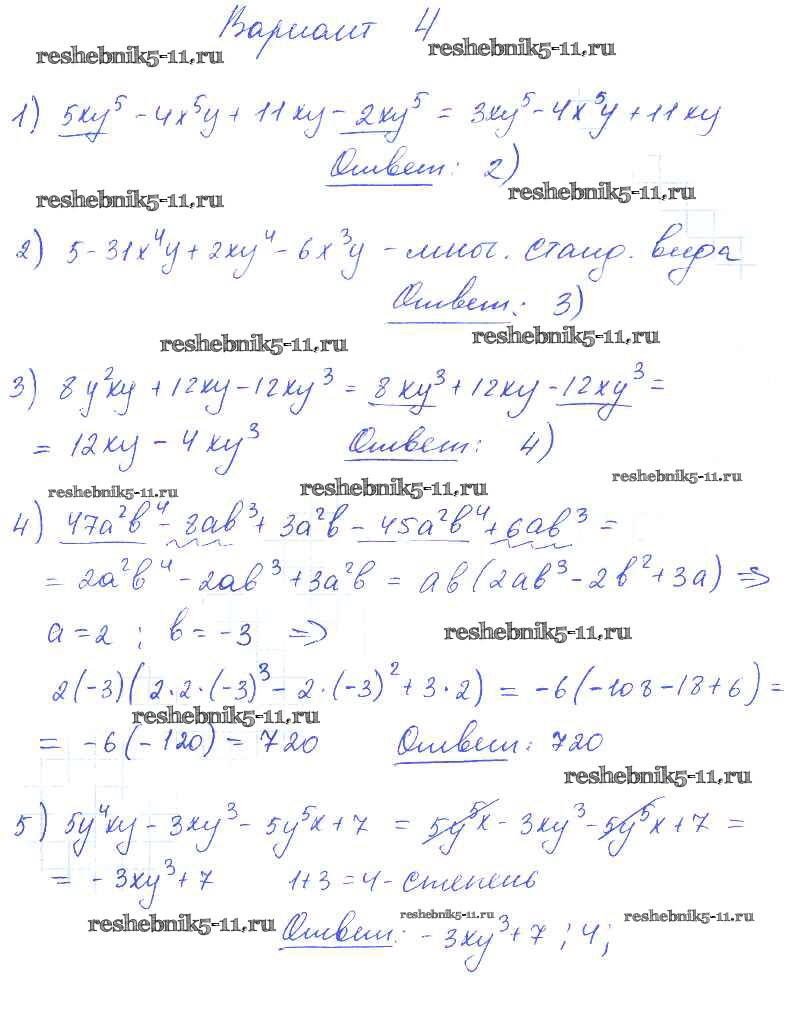 Вариант 4
reshebnik5-11.ru reshebnik5-11.ru
1) 5xy⁵ - 4x⁵y + 11xy - 2xy⁵ = 3xy⁵ - 4x⁵y + 11xy
Ответ: 2)
reshebnik5-11.ru reshebnik5-11.ru
2) 5 - 31x⁴y + 2xy⁴ - 6x³y - мног. станд. вида
Ответ: 3)
reshebnik5-11.ru reshebnik5-11.ru
3) 8y²xy + 12xy - 12xy³ = 8xy³ + 12xy - 12xy³ =
= 12xy - 4xy³ Ответ: 4)
reshebnik5-11.ru reshebnik5-11.ru reshebnik5-11.ru
4) 47a²b⁴ - 8ab³ + 3a²b - 45a²b⁴ + 6ab³ =
= 2a²b⁴ - 2ab³ + 3a²b = ab(2ab³ - 2b² + 3a) ⇒
a = 2 ; b = -3 ⇒ reshebnik5-11.ru
2(-3)(2·2·(-3)³ - 2·(-3)² + 3·2) = -6(-108 - 18 + 6) =
reshebnik5-11.ru
= -6(-120) = 720 Ответ: 720
reshebnik5-11.ru
5) 5y⁴xy - 3xy³ - 5y⁵x + 7 = 5y⁵x - 3xy³ - 5y⁵x + 7 =
= -3xy³ + 7 1+3 = 4 - степень
reshebnik5-11.ru reshebnik5-11.ru reshebnik5-11.ru
Ответ: -3xy³ + 7 ; 4;